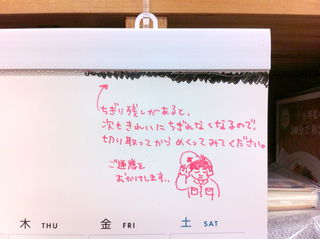 ちぎり残しがあると、
次もきれいにちぎれなくなるので、
切り取ってからめくってみてください。
ご迷惑を
おかけします..
木 THU 金 FRI 土 SAT